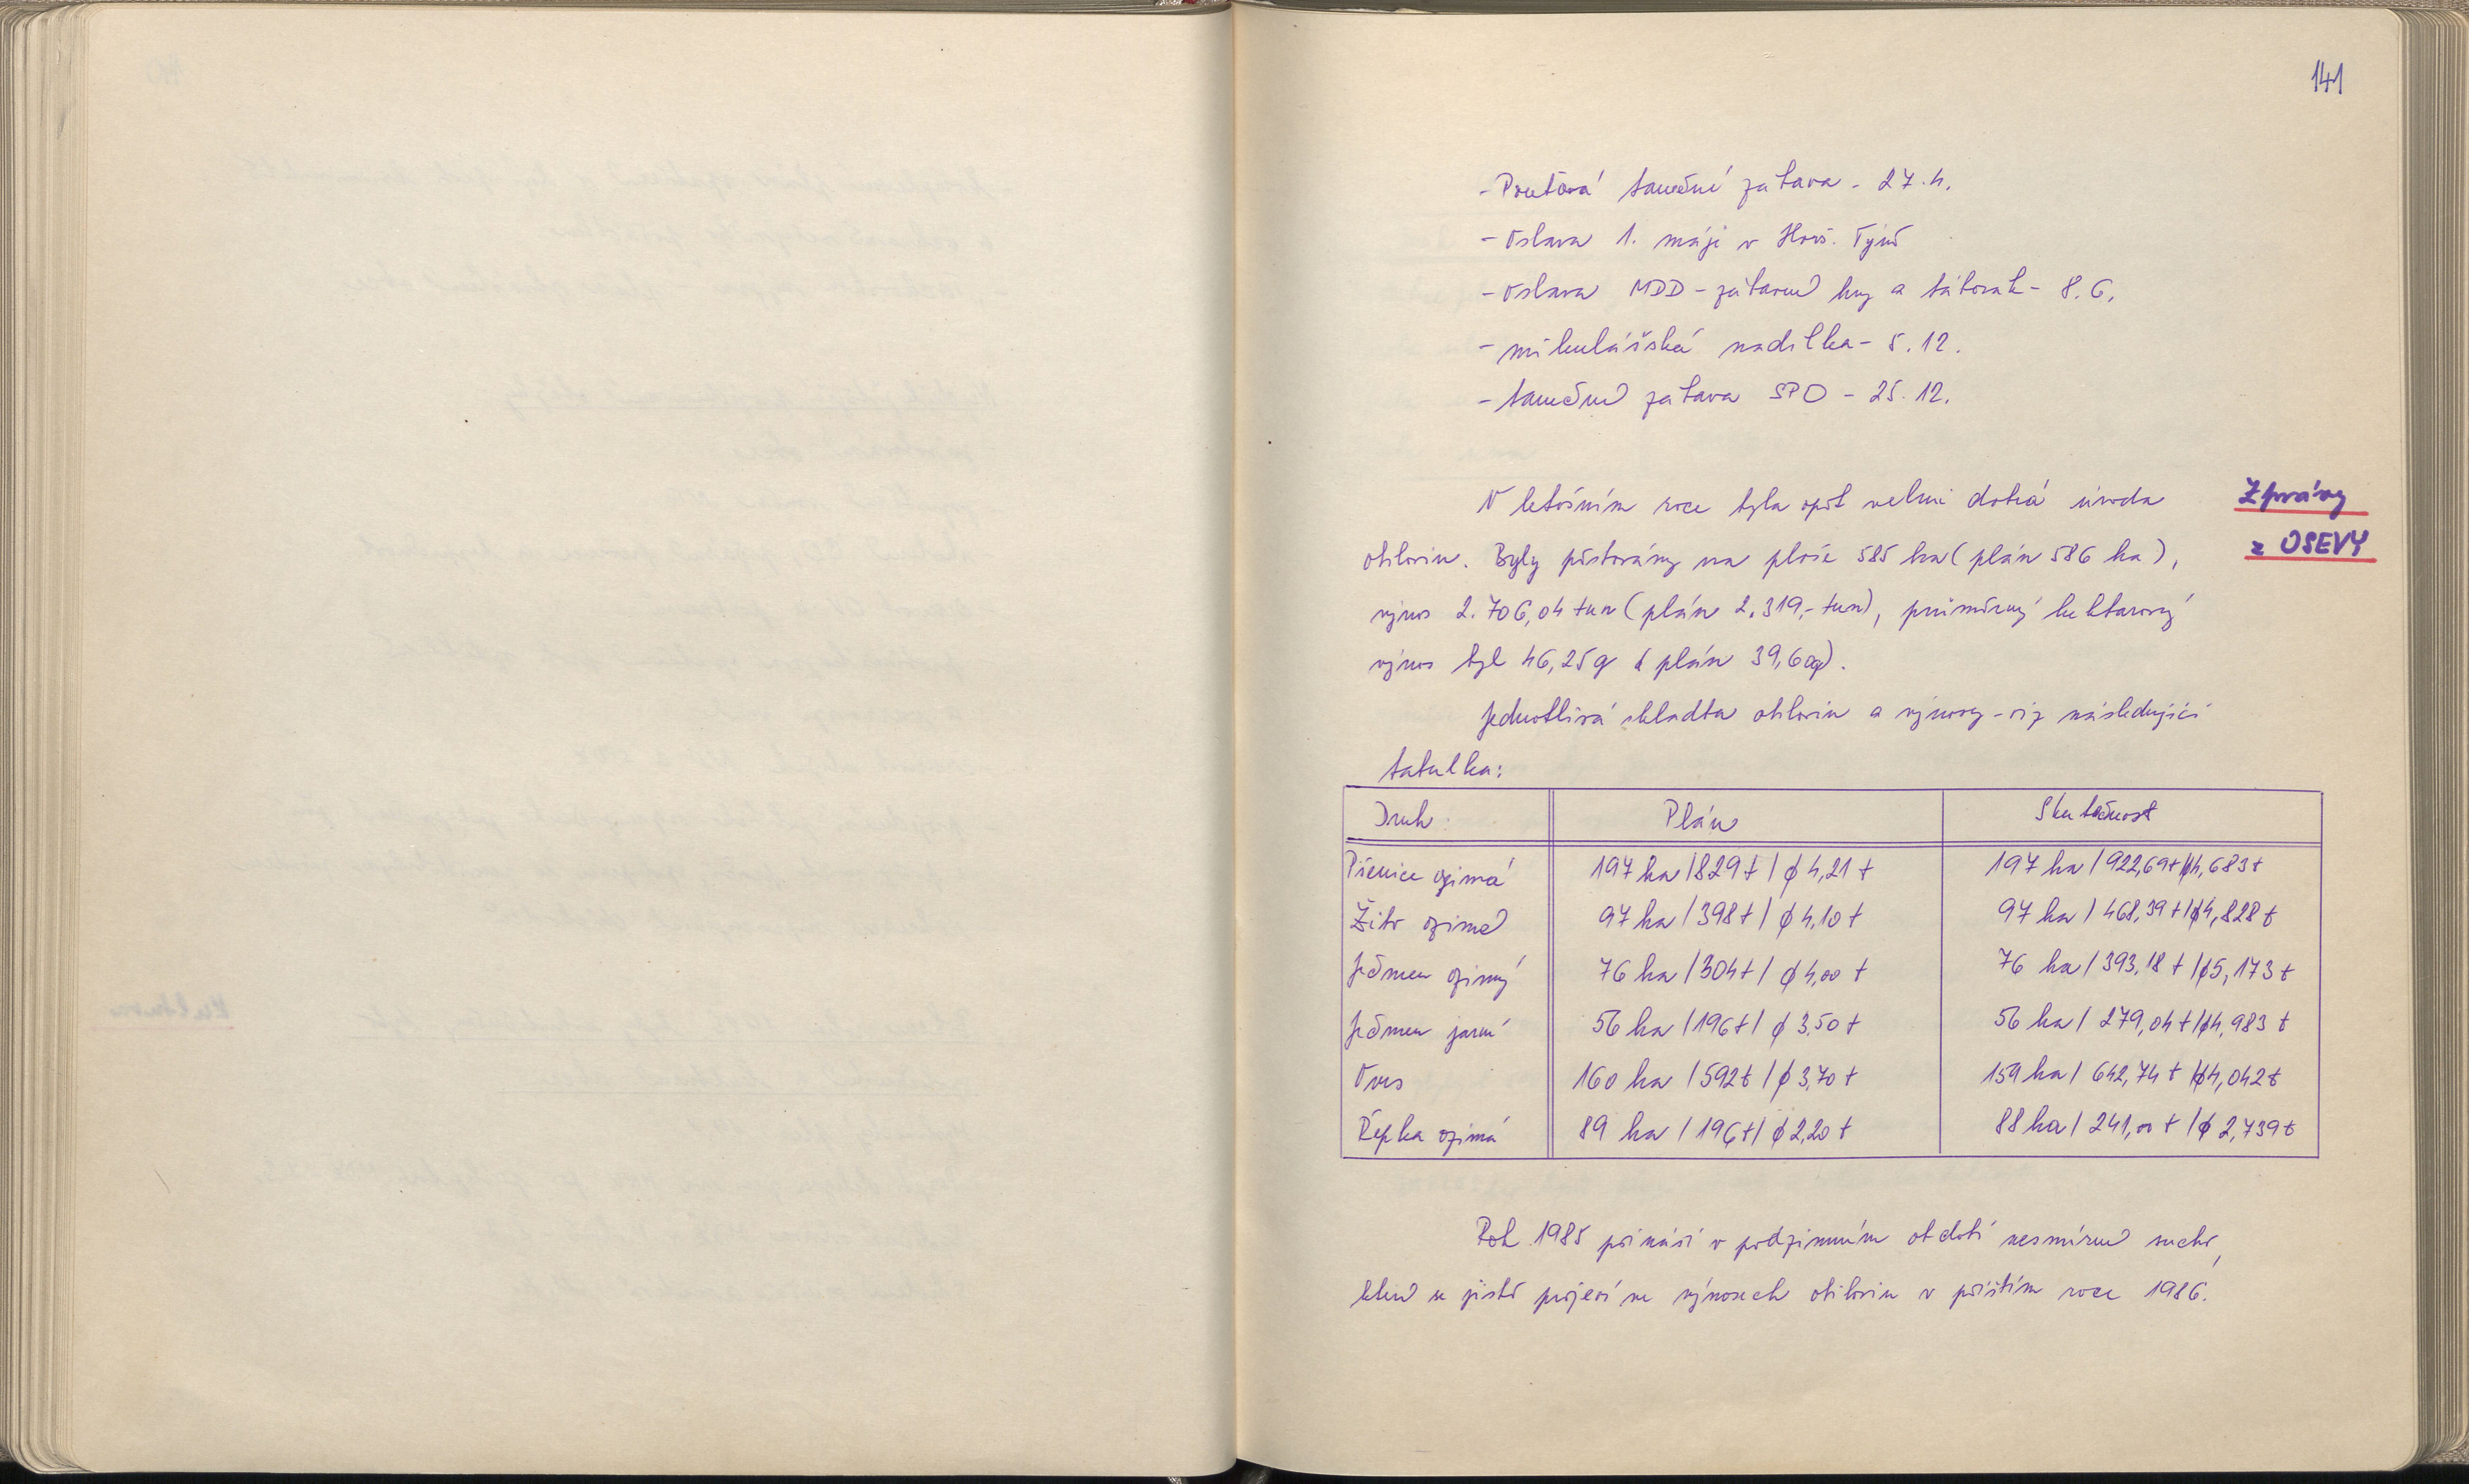 141
- Pouťová taneční zábava - 27.4.
- Oslava 1. máje v Horš. Týně
- Oslava MDD - zábavné hry a táborák - 8.6.
- mikulášská nadílka - 5.12.
- taneční zábava SPO - 25.12.
V letošním roce byla opět velmi dobrá úroda
obilovin. Byly pěstovány na ploše 585 ha (plán 586 ha),
výnos 2.706,04 tun (plán 2.319,- tun), průměrný hektarový
výnos byl 46,25 q (plán 39,60q).
Jednotlivá skladba obilovin a výnosy - viz následující
tabulka:
Zprávy
z OSEVY
Druh Plán Skutečnost
Pšenice ozimá 197 ha / 829 t / ϕ 4,21 t 197 ha / 922,69 t / ϕ 4,683 t
Žito ozimé 97 ha / 398 t / ϕ 4,10 t 97 ha / 468,39 t / ϕ 4,828 t
Ječmen ozimý 76 ha / 304 t / ϕ 4,00 t 76 ha / 393,18 t / ϕ 5,173 t
Ječmen jarní 56 ha / 196 t / ϕ 3,50 t 56 ha / 279,04 t / ϕ 4,983 t
Oves 160 ha / 592 t / ϕ 3,70 t 159 ha / 642,74 t / ϕ 4,042 t
Řepka ozimá 89 ha / 196 t / ϕ 2,20 t 88 ha / 241,00 t / ϕ 2,739 t
Rok 1985 přináší v podzimním období nesmírné sucho,
které se jistě projeví ve výnosech obilovin v příštím roce 1986.